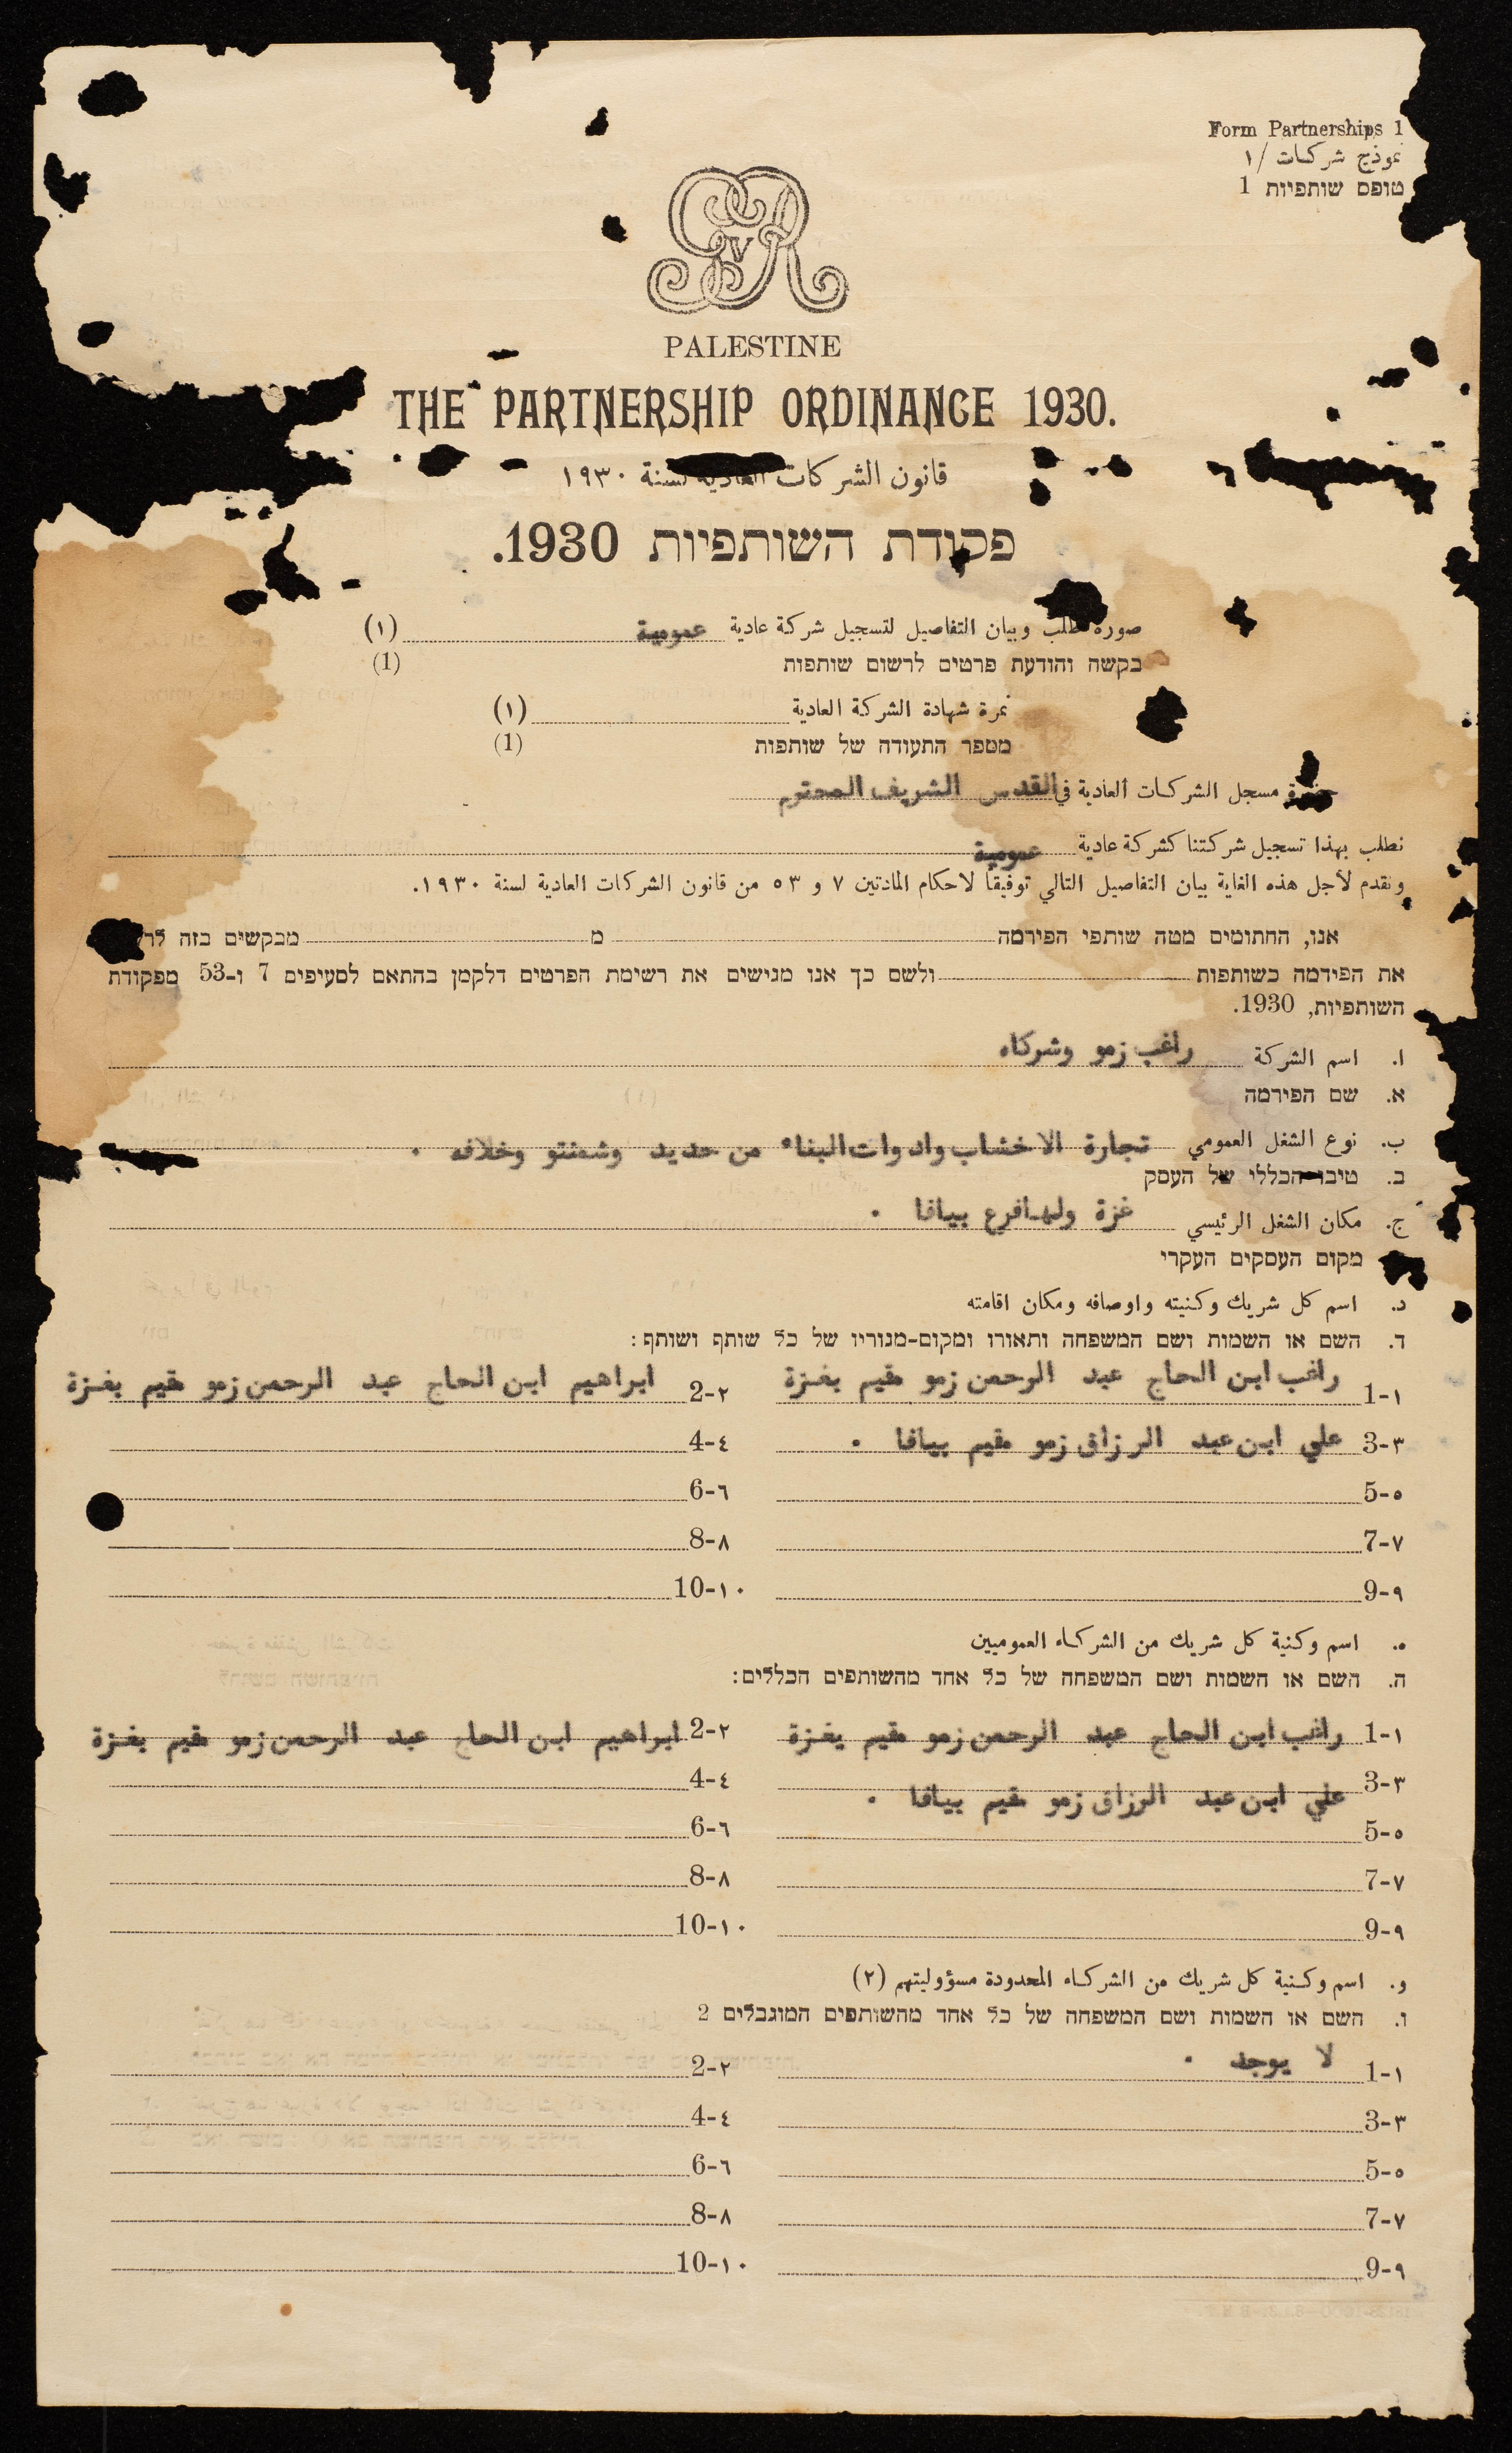 Form Partnerships 1
نموذج شركات /١
טופס שותפיות 1
GvR
PALESTINE
THE PARTNERSHIP ORDINANCE 1930.
قانون الشركات العادية لسنة ١٩٣٠
פקודת השותפיות 1930.
صورة طلب وبيان التفاصيل لتسجيل شركة عادية عمومية (١)
בקשה והודעת פרטים לרשום שותפות (1)
نمرة شهادة الشركة العادية (١)
מספר התעודה של שותפות (1)
حضرة مسجل الشركات العادية في القدس الشريف المحترم
نطلب بهذا تسجيل شركتنا كشركة عادية عمومية
ونقدم لأجل هذه الغاية بيان التفاصيل التالي توفيقا لاحكام المادتين ٧ و ٥٣ من قانون الشركات العادية لسنة ١٩٣٠.
אנו, החתומים מטה שותפי הפירמה מ מבקשים בזה
את הפירמה כשותפות ולשם כך אנו מגישים את רשימת הפרטים דלקמן בהתאם לסעיפים 7 ו-53 מפקודת
השותפיות, 1930.
ا. اسم الشركة راغب زمو وشركاه
א. שם הפירמה
ب. نوع الشغل العمومي تجارة الاخشاب وادوات البناء من حديد وشمنتو وخلافه .
ב. טיבו הכללי של העסק
ج. مكان الشغل الرئيسي غزة ولها فرع بيافا .
מקום העסקים העקרי
د. اسم كل شريك وكنيته واوصافه ومكان اقامته
ד. השם או השמות ושם המשפחה ותאורו ומקום-מגוריו של כל שותף ושותף:
1-١ راغب ابن الحاج عبد الرحمن زمو مقيم بغزة 2-٢ ابراهيم ابن الحاج عبد الرحمن زمو مقيم بغزة
3-٣ علي ابن عبد الرزاق زمو مقيم بيافا . 4-٤
5-٥ 6-٦
7-٧ 8-٨
9-٩ 10-١٠
ه. اسم وكنية كل شريك من الشركاء العموميين
ה. השם או השמות ושם המשפחה של כל אחד מהשותפים הכללים:
1-١ راغب ابن الحاج عبد الرحمن زمو مقيم بغزة 2-٢ ابراهيم ابن الحاج عبد الرحمن زمو مقيم بغزة
3-٣ علي ابن عبد الرزاق زمو مقيم بيافا . 4-٤
5-٥ 6-٦
7-٧ 8-٨
9-٩ 10-١٠
و. اسم وكنية كل شريك من الشركاء المحدودة مسؤوليتهم (٢)
ו. השם או השמות ושם המשפחה של כל אחד מהשותפים המוגבלים 2
1-١ لا يوجد . 2-٢
3-٣ 4-٤
5-٥ 6-٦
7-٧ 8-٨
9-٩ 10-١٠